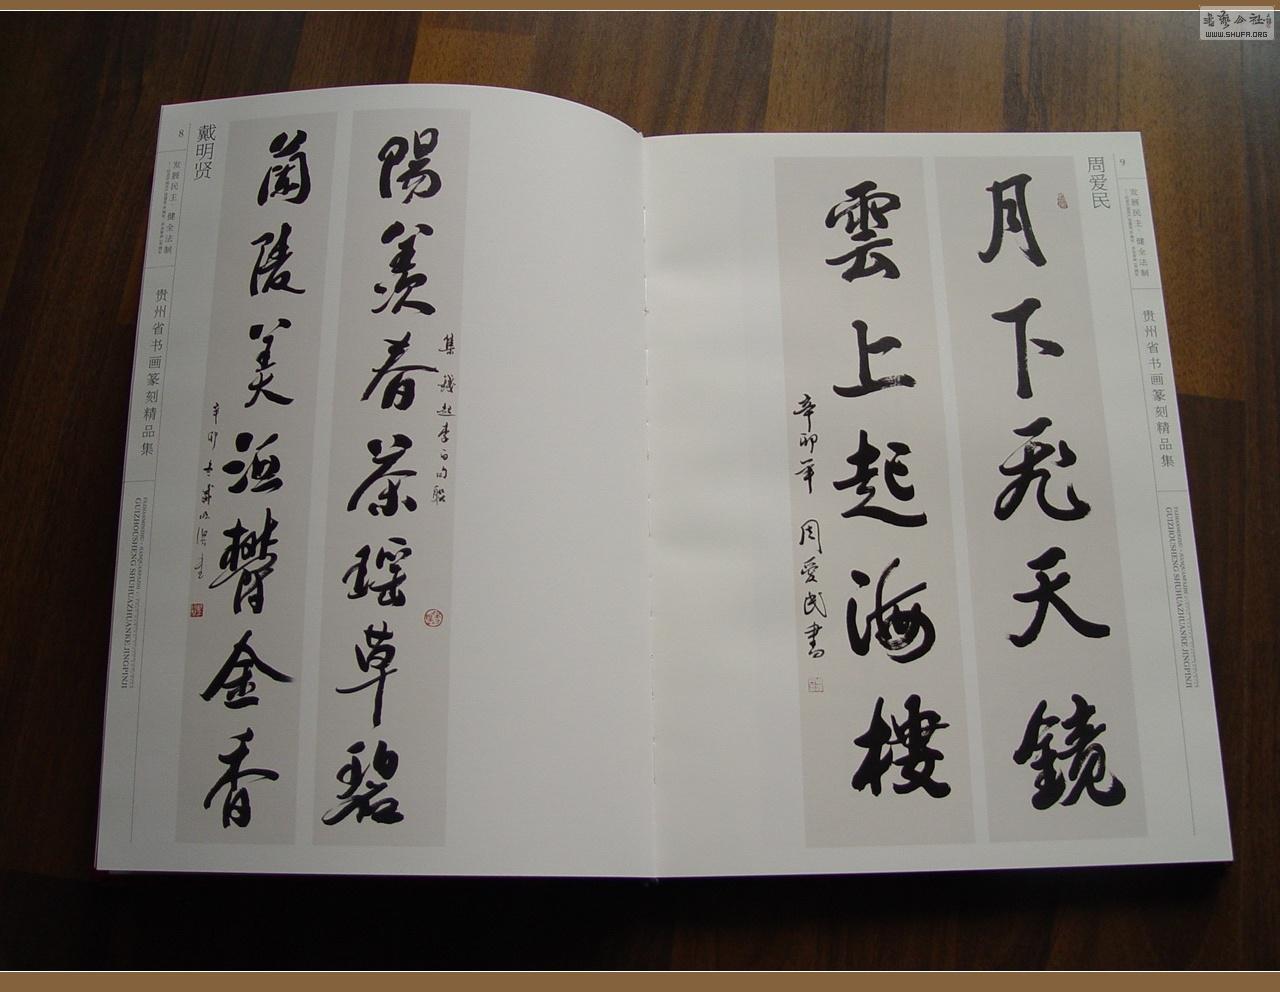 书艺公社
WWW.SHUFA.ORG
8
发展民主 健全法制
贵州省书画篆刻精品集
GUIZHOUSHENG SHUHUAZHUANKE JINGPINJI
戴明贤
集錢起李白句聯
陽羨春茶瑶草碧
蘭陵美酒欝金香
辛卯
9
发展民主 健全法制
贵州省书画篆刻精品集
GUIZHOUSHENG SHUHUAZHUANKE JINGPINJI
周爱民
月下飛天鏡
雲上起海樓
辛卯年 周爱民書